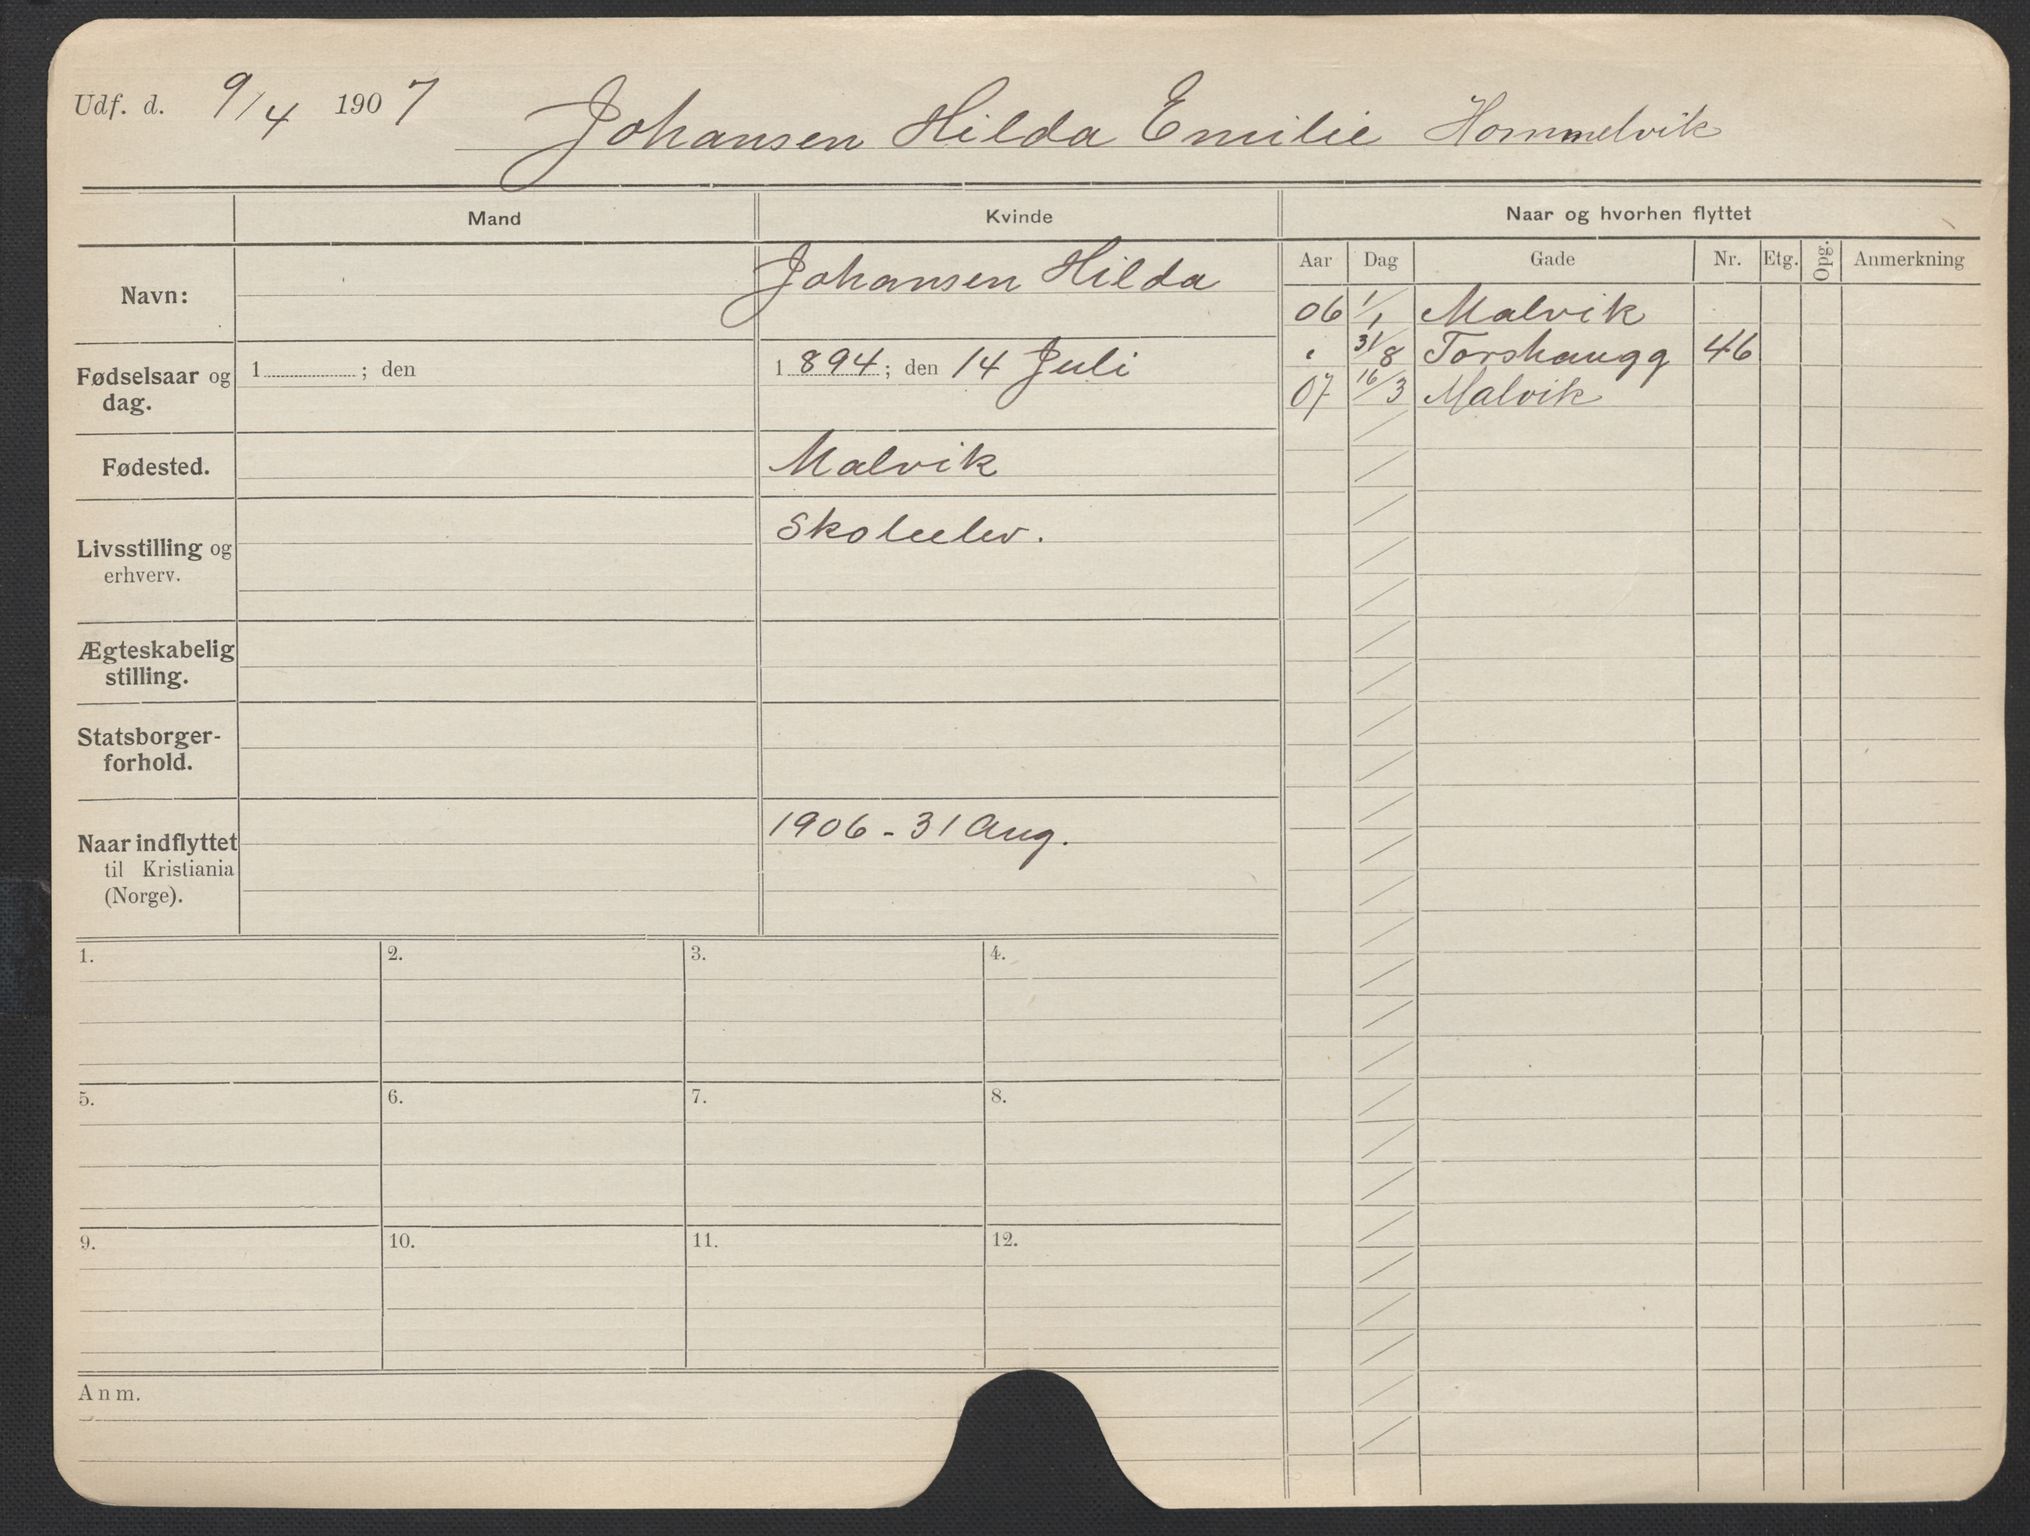 Udf. d. 9/4 1907 Johansen Hilda Emilie Hommelvik
Mand Kvinde Naar og hvorhen flyttet
Aar Dag Gade Nr. Etg. Opg. Anmerkning
Navn: Johansen Hilda
06 1/1 Malvik
" 31/8 Torshaugg 46
07 16/3 Malvik
Fødselsaar og 1 ; den 1 894 ; den 14 Juli
dag.
Fødested. Malvik
Livsstilling og Skoleelev.
erhverv.
Ægteskabelig
stilling.
Statsborger-
forhold.
Naar indflyttet 1906 - 31 Aug.
til Kristiania
(Norge).
1. 2. 3. 4.
5. 6. 7. 8.
9. 10. 11. 12.
Anm.